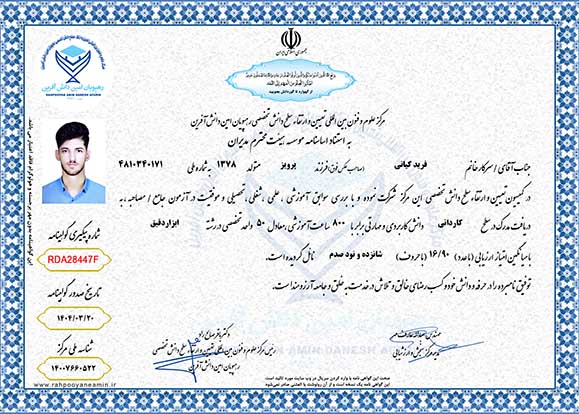 رهپویان امین دانش آفرین
RAHPOOYAN AMIN DANESH AFARIN
جمهوری اسلامی ایران
ز گهواره تا گور دانش بجویید
مرکز علوم و فنون بین المللی تعیین و ارتقاء سطح دانش تخصصی رهپویان امین دانش آفرین
به استناد اساسنامه موسسه، هیئت محترم مدیران
جناب آقای / سرکار خانم فرید کیانی (صاحب عکس فوق) فرزند پرویز متولد ۱۳۷۸ به شماره ملی ۴۸۱۰۳۴۰۱۷۱
در کمیسیون تعیین و ارتقاء سطح دانش تخصصی این مرکز شرکت نموده و با بررسی سوابق آموزشی ، علمی ، شغلی ، تحصیلی و موفقیت در آزمون جامع / مصاحبه ، به
دریافت مدرک در سطح کاردانی دانش کاربردی و مهارتی برابر با ۸۰۰ ساعت آموزشی معادل ۵۰ واحد تخصصی در رشته ابزاردقیق
با میانگین امتیاز ارزیابی (با عدد) ۱۶/۹۰ (با حروف) شانزده و نود صدم نائل گردیده است.
توفیق نامبرده را در حرفه و دانش خود و کسب رضای خالق و تلاش در خدمت به خلق و جامعه آرزومند است.
شماره پیگیری گواهینامه
RDA28447F
تاریخ صدور گواهینامه
۱۴۰۴/۰۳/۲۰
شناسه ملی مرکز
۱۴۰۰۷۶۶۰۵۲۲
www.rahpooyaneamin.ir
رئیس مرکز علوم و فنون بین المللی تعیین و ارتقاء سطح دانش تخصصی
رهپویان امین دانش آفرین
AMIN DANESH AFARIN